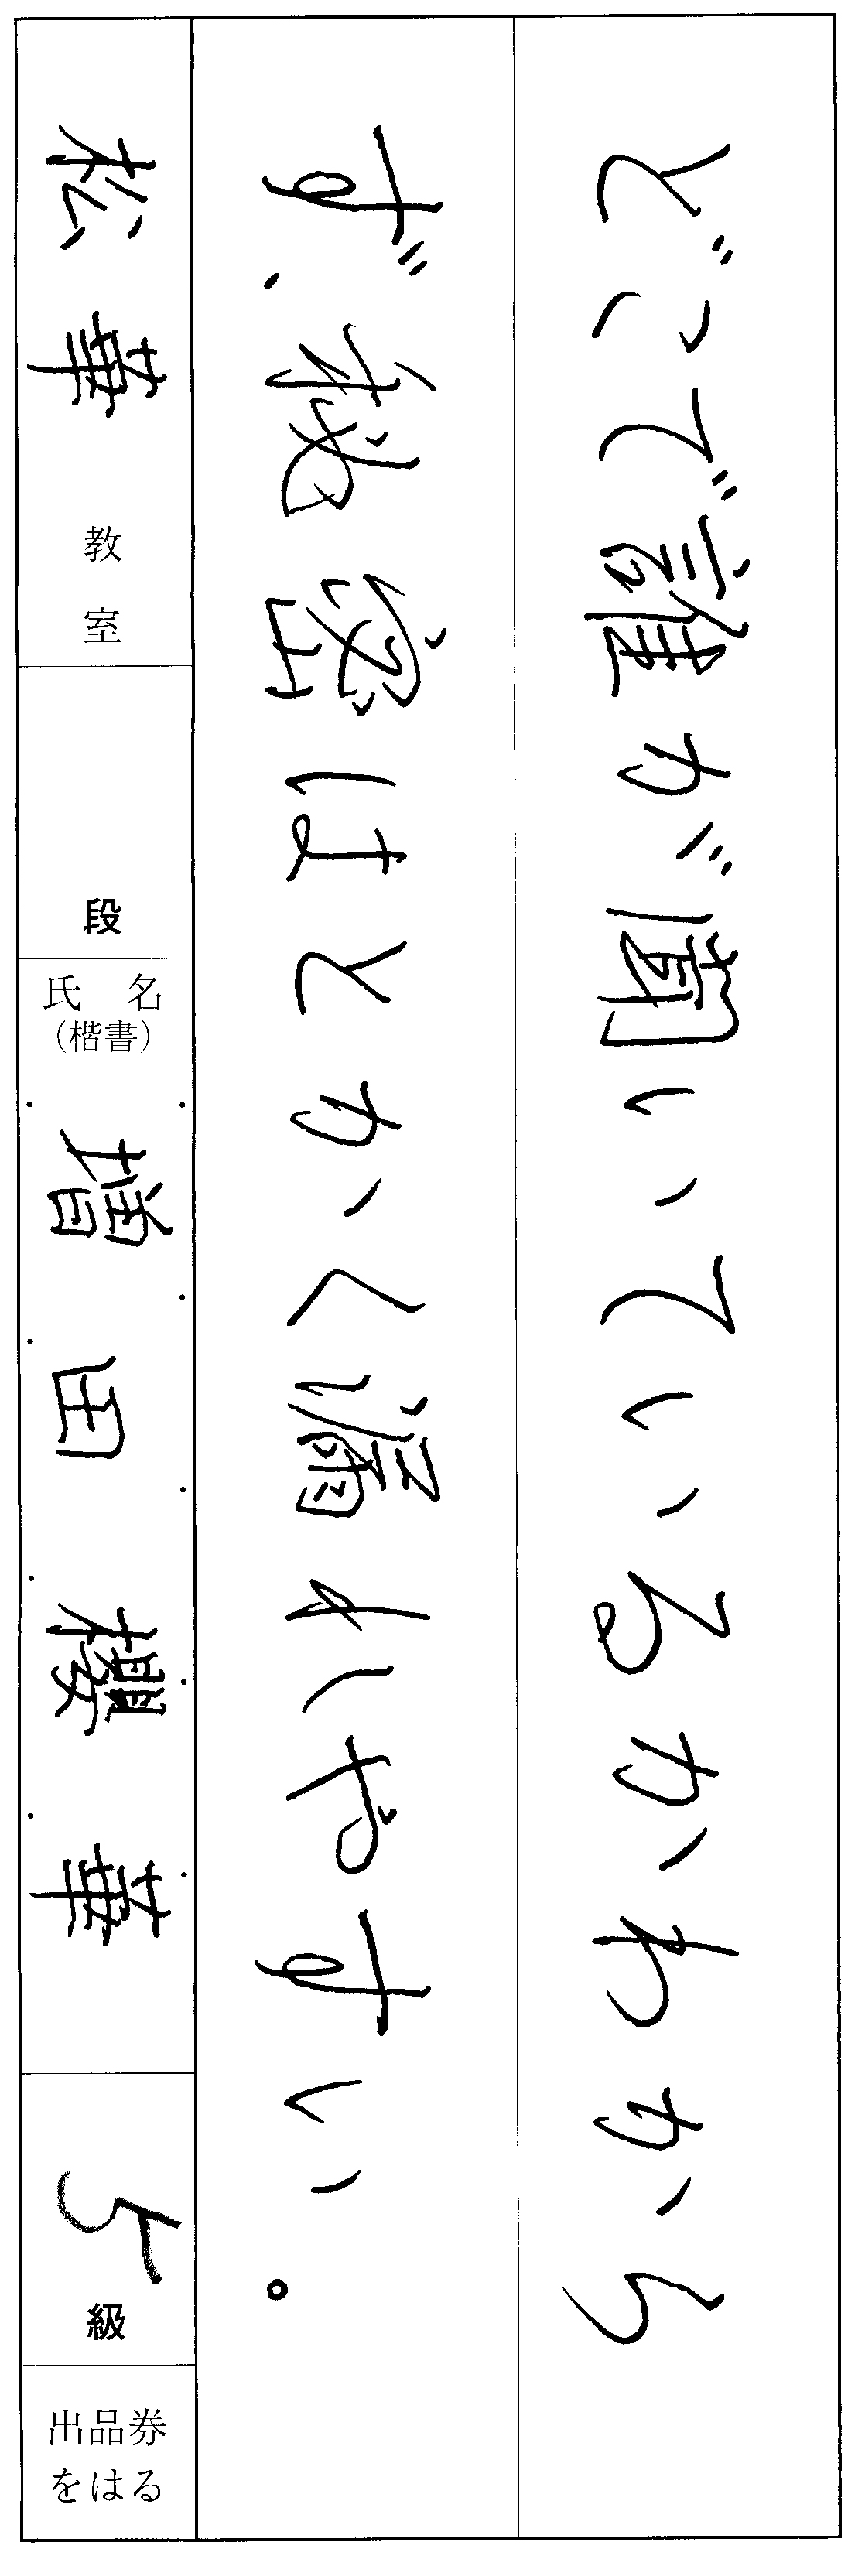 どこで誰が聞いているかわから
ず、秘密はとかく漏れやすい。
松華教室
段
氏名
(楷書)
増田櫻華
5級
出品券
をはる